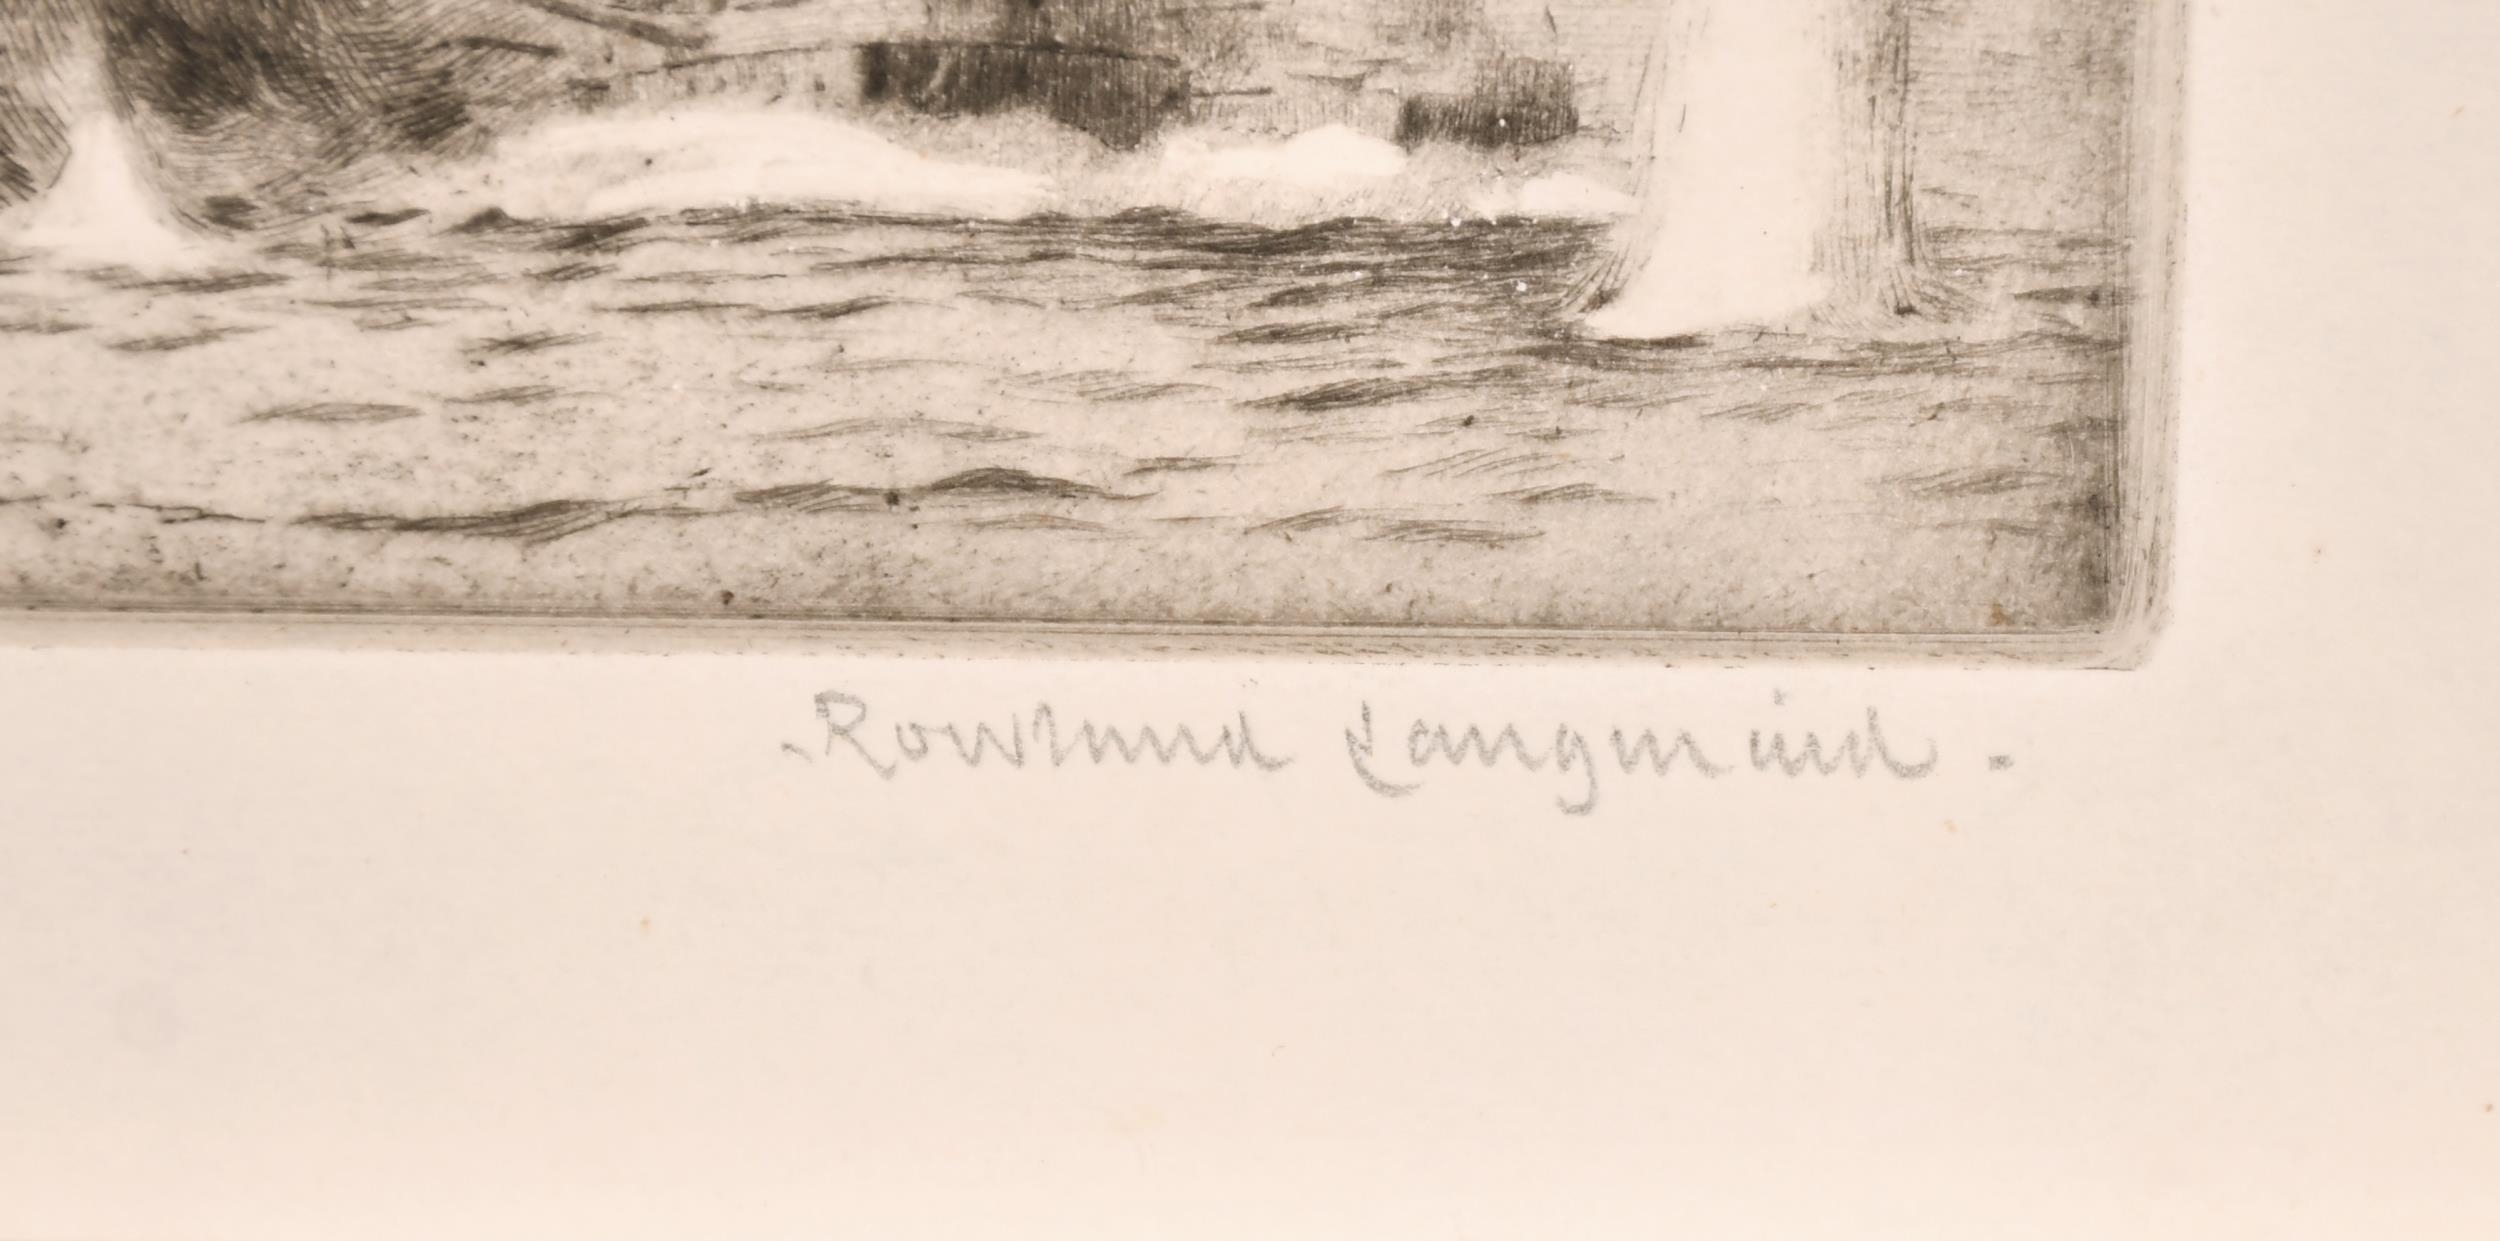 . Rowland Langmaid .